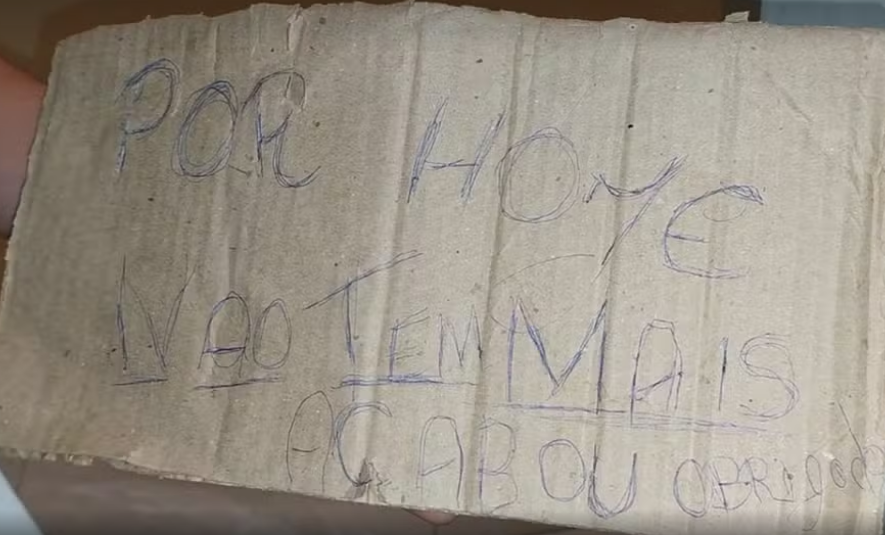 POR HOYE
NAO TEM MAIS
ACABOU OBRIgada